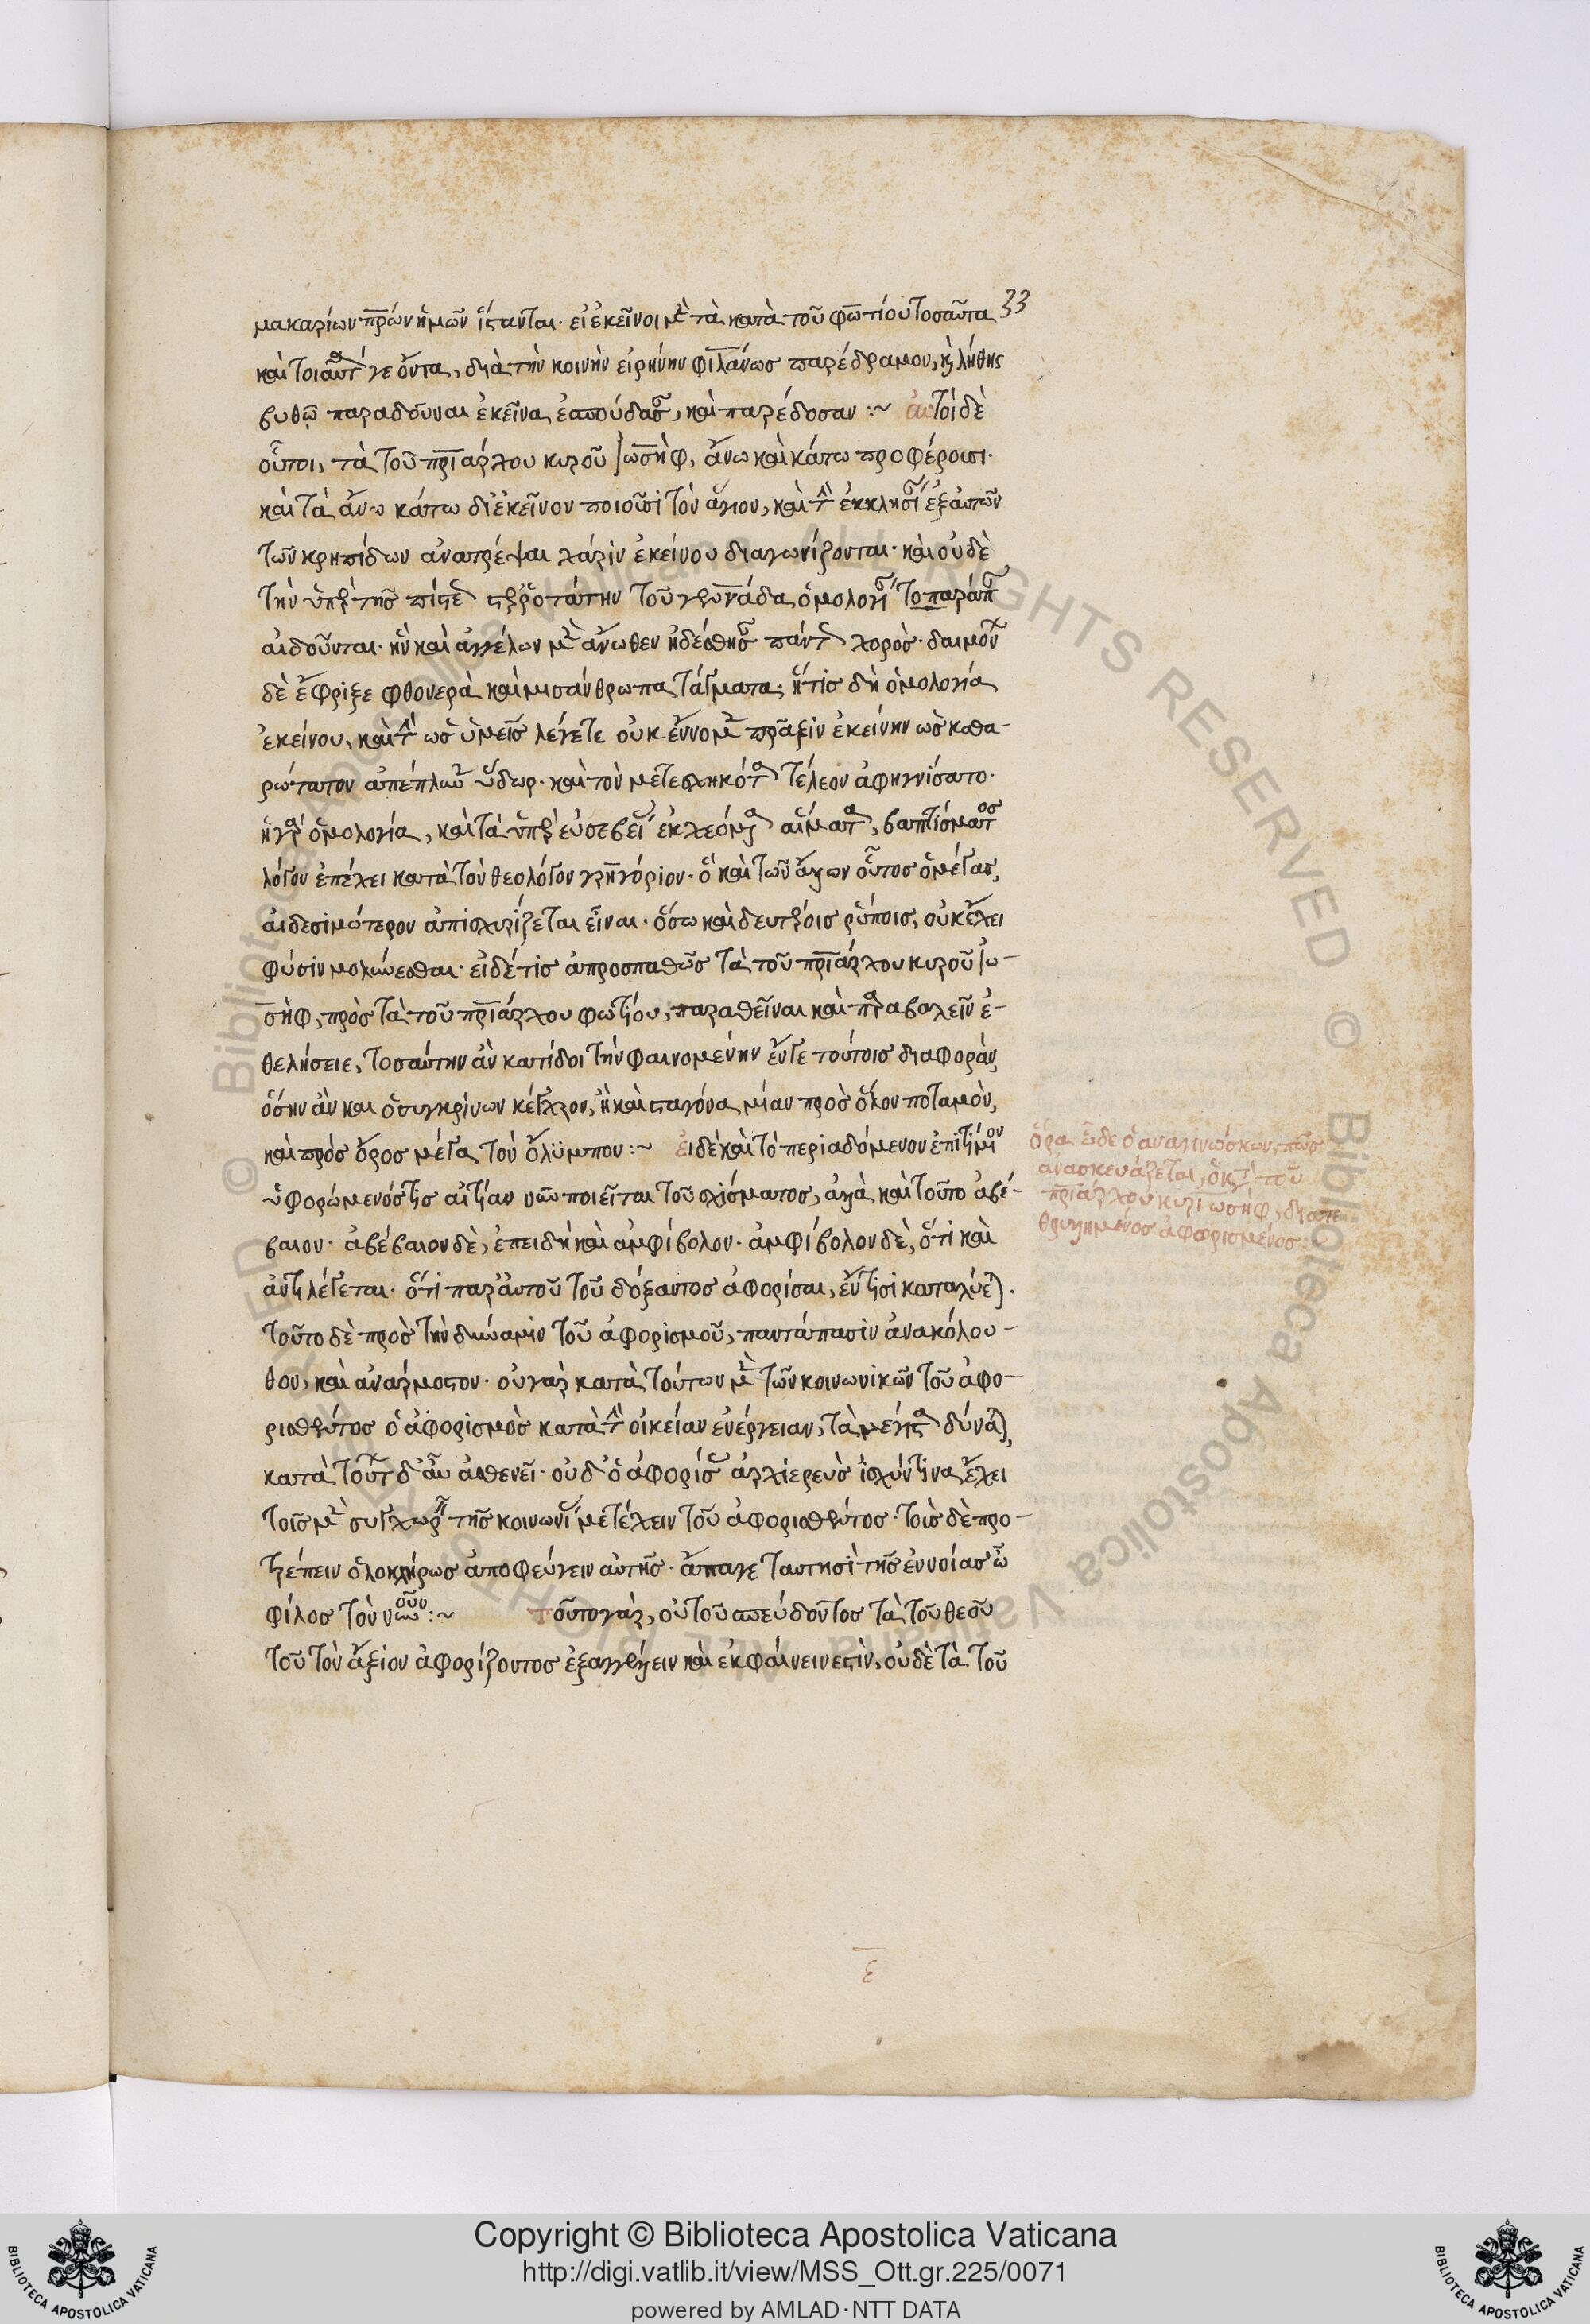 33
μακαρίων πρων ἡμῶν ἵστανται· εἰ ἐκεῖνοι μὲν τὰ κατὰ τοῦ φωτίου τοσαῦτα
καὶ τοιαῦτά γε ὄντα, διὰ τὴν κοινὴν εἰρήνην φιλανως παρέδραμον, καὶ λήθης
βυθῷ παραδοῦναι ἐκεῖνα ἐσπούδασαν, καὶ παρέδοσαν :~ αυτοὶ δὲ
οὗτοι, τὰ τοῦ πριάρχου κυροῦ Ἰωσὴφ, ἄνω καὶ κάτω προφέρουσι·
καὶ τὰ ἄνω κάτω δι' ἐκεῖνον ποιοῦσι τὸν ἅγιον, καὶ τὴν ἐκκλησίαν ἐξ αὐτῶν
τῶν κρηπίδων ἀνατρέψαι χάριν ἐκείνου διαγωνίζονται· καὶ οὐδὲ
τὴν ὑπὲρ τῆς πίστεως στερροτάτην τοῦ γεννάδα ὁμολογίαν τοπαράπαν
αἰδοῦνται· ἣν καὶ ἀγγέλων μὲν ἄνωθεν ἠδέσθησαν πάντως χορὸς· δαιμόνων
δὲ ἔφριξε φθονερὰ καὶ μισάνθρωπα τάγματα· ἥτις δὴ ὁμολογία
ἐκείνου, καὶ τὴν ὡς ὑμεῖς λέγετε οὐκ ἔννομον πρᾶξιν ἐκείνην ὡς καθα-
ρώτατον ἀπέπλυνεν ὕδωρ· καὶ τὸν μετεσχηκότα τέλεον ἀφηγνίσατο·
ἡ γὰρ ὁμολογία, καὶ τὰ ὑπὲρ εὐσεβείας ἐκχεόμενα αἵματα, βαπτίσματος
λόγον ἐπέχει κατὰ τὸν θεολόγον γρηγόριον· ὃ καὶ τῶν ἄλλων οὗτος ὁ μέγας,
αἰδεσιμώτερον ἀπισχυρίζεται εἶναι· ὅσω καὶ δευτέροις ῥύποις, οὐκ ἔχει
φύσιν μολύνεσθαι· εἰ δέ τις ἀπροσπαθῶς τὰ τοῦ πριάρχου κυροῦ Ἰω-
σὴφ, πρὸς τὰ τοῦ πριάρχου φωτίου, παραθεῖναι καὶ παραβαλεῖν ἐ-
θελήσειε, τοσαύτην ἂν κατίδοι τὴν φαινομένην ἔν γε τούτοις διαφορὰν,
ὅσην ἂν καὶ ὁ συγκρίνων κέγχρον, ἢ καὶ σταγόνα μίαν πρὸς ὅλον ποταμὸν,
καὶ πρὸς ὄρος μέγα τὸν ὄλϋμπον :~ εἰ δὲ καὶ τὸ περιαδόμενον ἐπιτίμιον
ὑφορώμενός τις αἰτίαν νῦν ποιεῖται τοῦ σχίσματος, ἀλλὰ καὶ τοῦτο ἀβέ-
βαιον· ἀβέβαιον δὲ, ἐπειδὴ καὶ ἀμφίβολον· ἀμφίβολον δὲ, ὅτι καὶ
ἀντιλέγεται· ὅτι παρ' αὐτοῦ τοῦ δόξαντος ἀφορίσαι, ἔν τισι καταλύεται·
τοῦτο δὲ πρὸς τὴν δύναμιν τοῦ ἀφορισμοῦ, παντάπασιν ἀνακόλου-
θον, καὶ ἀνάρμοστον· οὐ γὰρ κατὰ τούτων μὲν τῶν κοινωνικῶν τοῦ ἀφο-
ρισθέντος ὁ ἀφορισμὸς κατὰ τὴν οἰκείαν ἐνέργειαν, τὰ μέγιστα δύναται,
κατὰ τούτων δ' αὖ ἀσθενεῖ· οὐδ' ὁ ἀφορίσας ἀρχιερεὺς ἰσχύν τινα ἔχει
τοῖς μὲν συγχωρεῖν τῆς κοινωνίας μετέχειν τοῦ ἀφορισθέντος· τοῖς δὲ προ-
τρέπειν ὁλοκλήρως ἀποφεύγειν αὐτῆς· ἄπαγε ταυτησὶ τῆς ἐννοίας ὦ
φίλος τὸν νοῦν :~ τοῦτο γὰρ, οὐ τοῦ σπεύδοντος τὰ τοῦ θεοῦ
τοῦ τὸν ἄξιον ἀφορίζοντος ἐξαγγέλλειν καὶ ἐκφαίνειν ἐστὶν, οὐδὲ τὰ τοῦ
ὅρα ὧδε ὁ αναγινώσκων, πῶς
ἀνασκευάζεται, ὁ κατὰ τοῦ
πριάρχου κυρ ιωσὴφ, διατε
θρυλημένος ἀφορισμένος:
ε